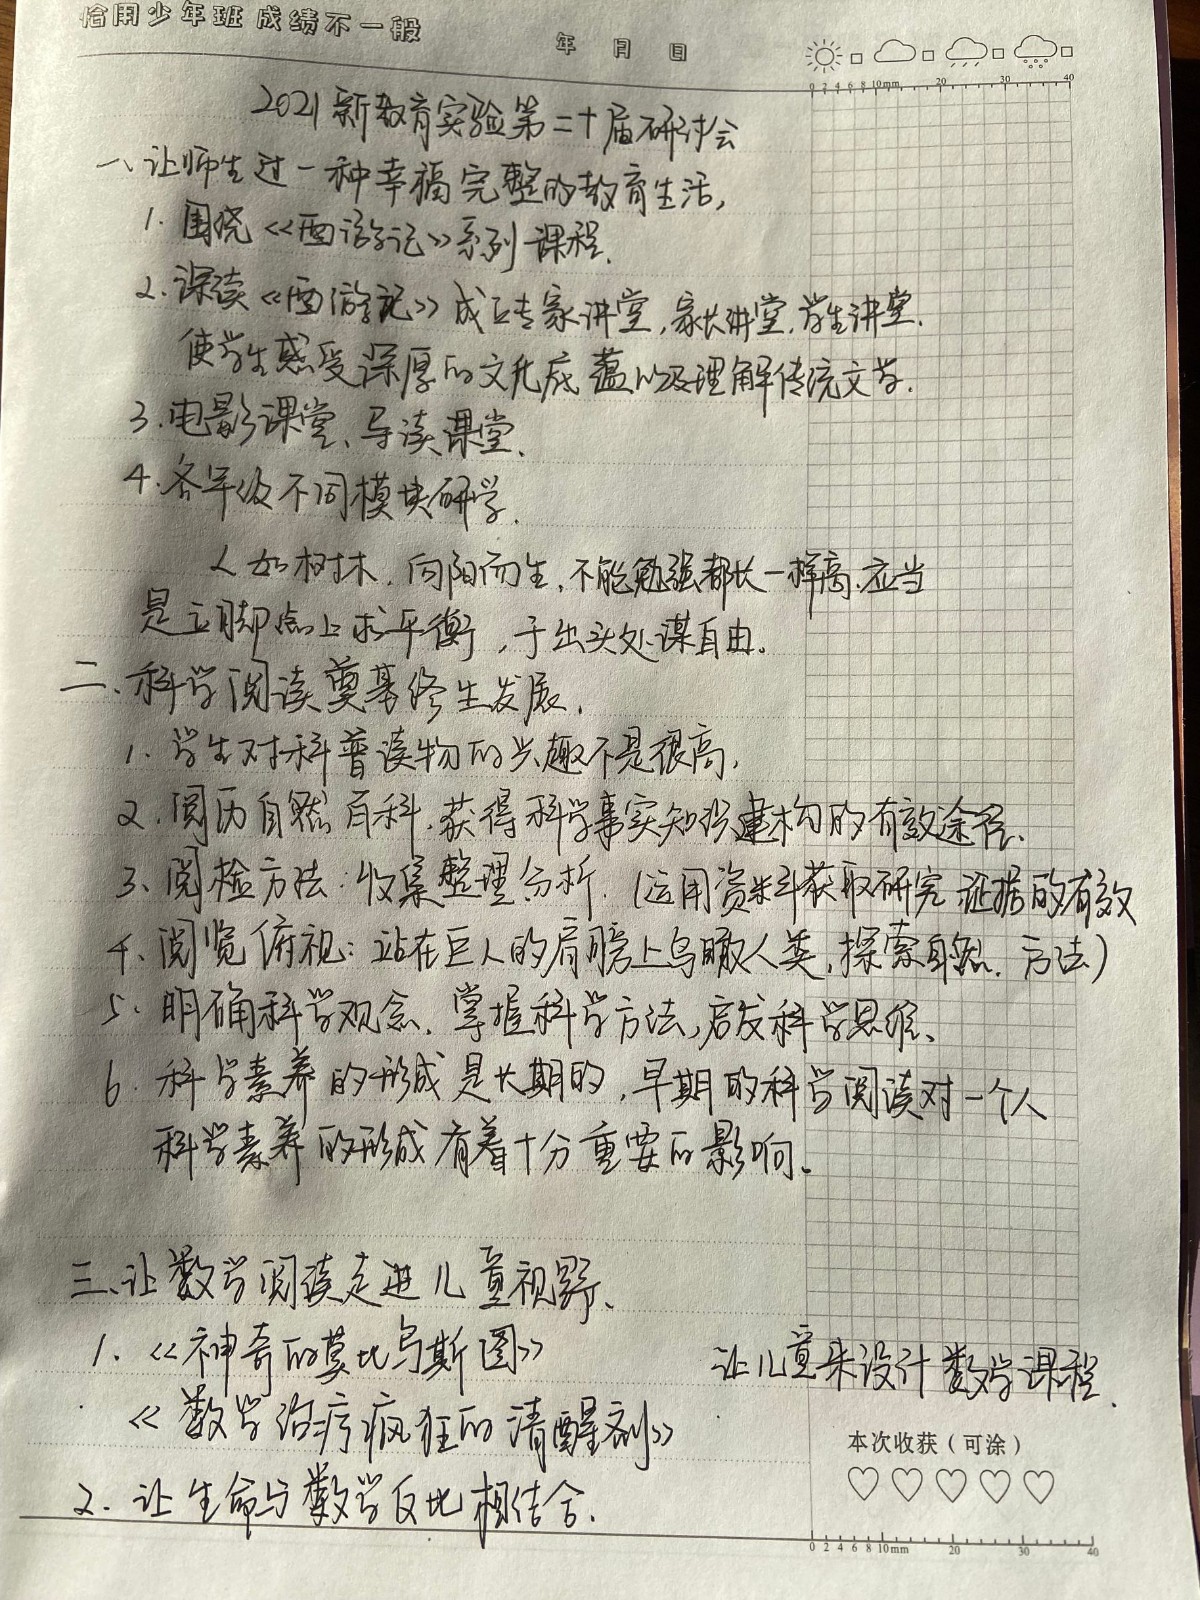 恰同少年班 成绩不一般
年 月 日
0 2 4 6 8 10mm 20 30 40
2021新教育实验第二十届研讨会
一、让师生过一种幸福完整的教育生活,
1. 围绕《西游记》系列课程.
2. 深读《西游记》成立专家讲堂,家长讲堂,学生讲堂.
使学生感受深厚的文化底蕴以及理解传统文学.
3.电影课堂、导读课堂.
4.各年级不同模块研学.
人如树木,向阳而生,不能勉强都长一样高.应当
是立脚点上求平衡,于出头处谋自由。
二、科学阅读奠基终生发展.
1. 学生对科普读物的兴趣不是很高,
2.阅历自然百科,获得科学事实知识建构的有效途径.
3、阅检方法:收集整理分析.(运用资料获取研究证据的有效
4、阅览俯视:站在巨人的肩膀上鸟瞰人类,探索自然. 方法)
5. 明确科学观念,掌握科学方法,启发科学思维.
6. 科学素养的形成是长期的,早期的科学阅读对一个人
科学素养的形成有着十分重要的影响。
三、让数学阅读走进儿童视野.
1.《神奇的莫比乌斯圈》 让儿童来设计数学课程.
《数学治疗疯狂的清醒剂》
2. 让生命与数学反比相结合.
本次收获(可涂)
0 2 4 6 8 10mm 20 30 40